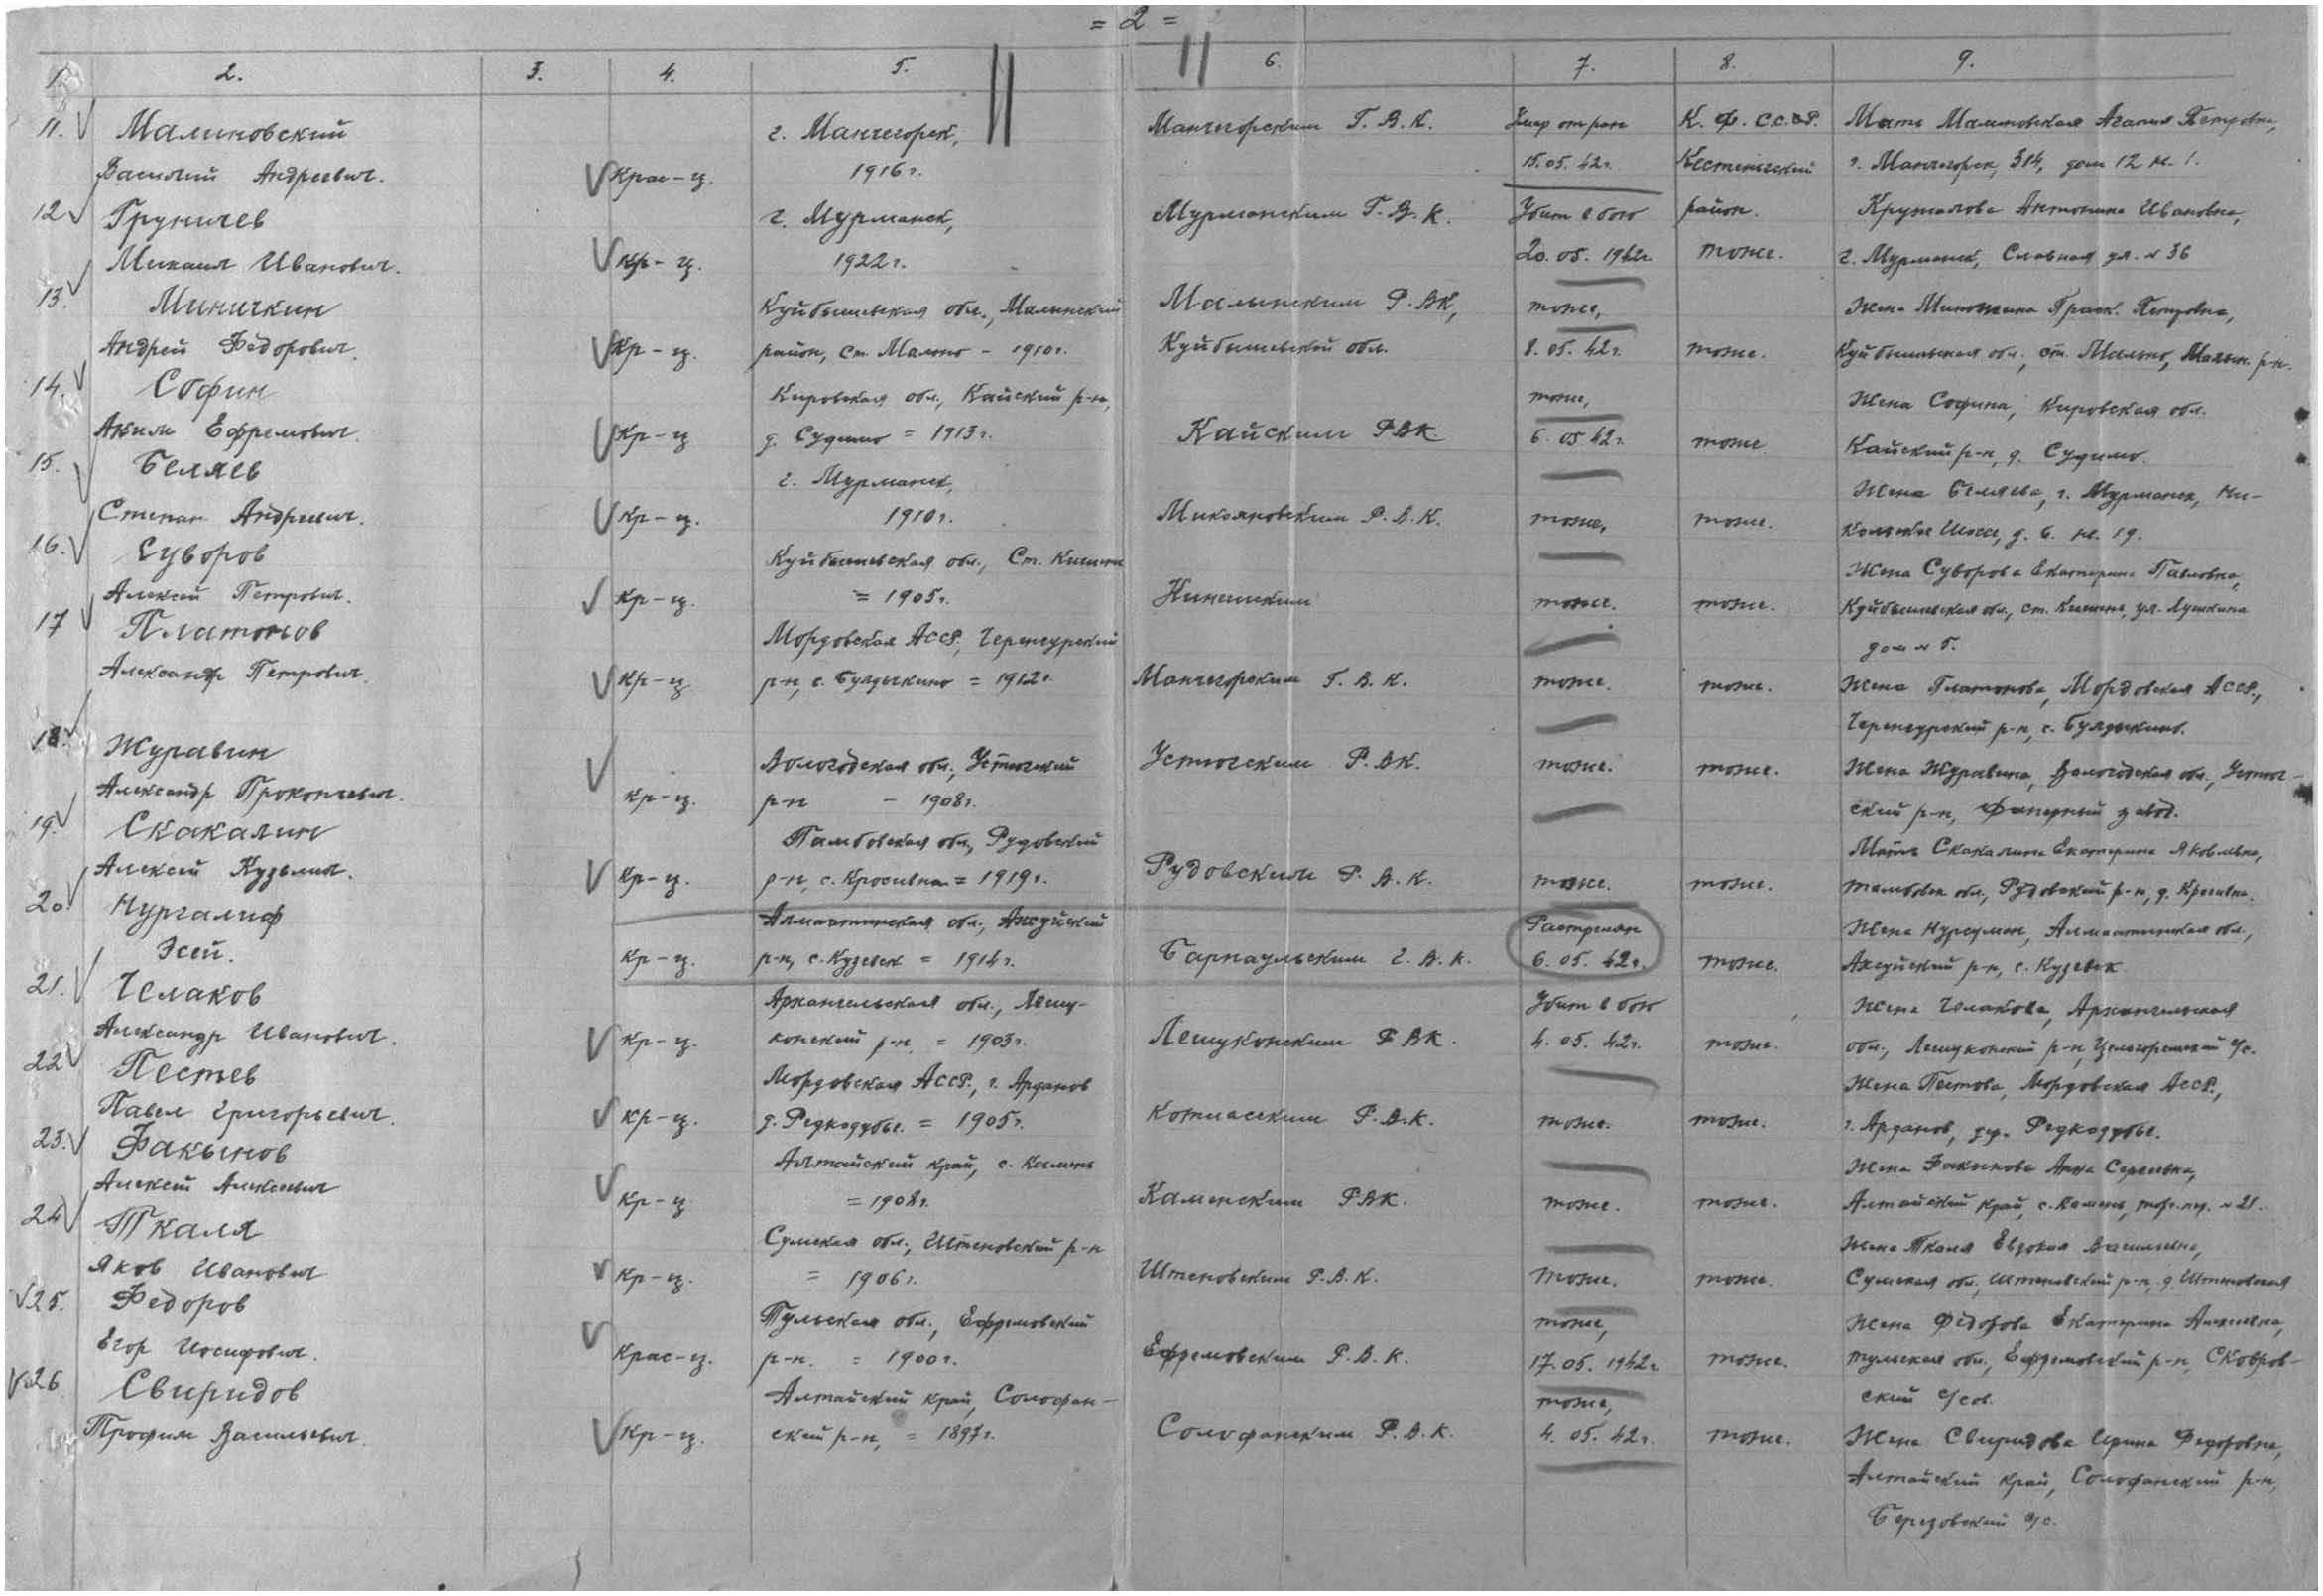 = 2 =
1. 2. 3. 4. 5. 6. 7. 8. 9.
11. Малиновский г. Мончегорск, Мончегорским Г.В.К. Умер от ран К.Ф.С.С.Р. Мать Малиновская Агапия Петровна,
Василий Андреевич. Крас-ц. 1916 г. 15.05.42г. Кестеньгский г. Мончегорск, 314, дом 12 к. 1.
12 Груничев г. Мурманск, Мурманским Г.В.К. Убит в бою район. Кружалова Антонина Ивановна,
Михаил Иванович. Кр-ц. 1922 г. 20.05.1942г. тоже. г. Мурманск, Славная ул. № 36
13. Миничкин Куйбышевская обл., Малынский Малынским Р.ВК, тоже, Жена Праск. Петровна,
Андрей Фёдорович. Кр-ц. район, ст. - 1910г. Куйбышевской обл. 8.05.42г. тоже. Куйбышевская обл., ст. р-н.
14. Софин Кировская обл., Кайский р-н, тоже, Жена Софина, Кировская обл.
Аким Ефремович. Кр-ц д. Судимо = 1913г. Кайским РВК. 6.05.42г. тоже Кайский р-н, д. Судимо.
15. Беляев г. Мурманск, Жена Беляева, г. Мурманск, Ни-
Степан Андреевич. Кр-ц. 1910г. Микояновским Р.В.К. тоже, тоже. кольское Шоссе, д. 6. кв. 19.
16. Суворов Куйбышевская обл., Ст. Жена Суворова Екатерина Павловна,
Алексей Петрович. Кр-ц. = 1905г. тоже. тоже. Куйбышевская обл., ст. ул. Пушкина
17 Платонов Мордовская АССР, дом № 5.
Александр Петрович. Кр-ц р-н, с. Булдыкино = 1912г. Мончегорским Г.В.К. тоже. тоже. Жена Платонова, Мордовская АССР,
р-н, с. Булдыкино.
18. Журавин Вологодская обл., Устюгский Устюгским Р.ВК. тоже. тоже. Жена Журавина, Вологодская обл., Устюг-
Александр Прокопьевич. Кр-ц. р-н - 1908г. ский р-н, Фанерный завод.
19. Скакалин Тамбовская обл., Рудовский Мать Скакалина Екатерина Яковлевна,
Алексей Кузьмич. Кр-ц. р-н, с. = 1919г. Рудовским Р.В.К. тоже. тоже. Тамбовск обл., Рудовский р-н, д.
20. Нургалиф Алмаатинская обл., Аксуйский Расстрелян Жена Алмаатинская обл,
Эсей. Кр-ц. р-н, с. Кузевск = 1914г. Барнаульским Г.В.К. 6.05.42г. тоже. Аксуйский р-н, с. Кузевск
21. Челаков Архангельская обл., Лешу- Убит в бою Жена Челакова, Архангельская
Александр Иванович. Кр-ц. конский р-н = 1903г. Лешуконским РВК. 4.05.42г. тоже. обл., Лешуконский р-н, с/с.
22 Пестев Мордовская АССР, г. Арданов Жена Пестова, Мордовская АССР,
Павел Григорьевич. Кр-ц. д. Редкодубье. = 1905г. Котласским Р.В.К. тоже. тоже. г. Арданов, дер. Редкодубье.
23. Факынов Алтайский край, с. Камень Жена Факинова Анна Сергеевна,
Алексей Алексеевич Кр-ц = 1908г. Каменским РВК. тоже. тоже. Алтайский край, с. Камень, № 21.
24 Ткаля Сумская обл., Штеповский р-н Жена Ткаля Евдокия Васильевна,
Яков Иванович Кр-ц. = 1906г. Штеповским Р.В.К. тоже. тоже. Сумская обл, Штеповский р-н, д. Штеповская
25. Федоров Тульская обл., Ефремовский тоже, Жена Фёдорова Екатерина Алексеевна,
Егор Иосифович. Крас-ц. р-н. = 1900г. Ефремовским Р.В.К. 17.05.1942г. тоже. Тульская обл., Ефремовский р-н, Сковров-
26 Свиридов Алтайский край, Солофан- тоже, ский с/сов.
Трофим Васильевич. Кр-ц. ский р-н, = 1897г. Солофанским Р.В.К. 4.05.42г. тоже. Жена Свиридова Ирина Федоровна,
Алтайский край, Солофанский р-н,
Березовский с/с.